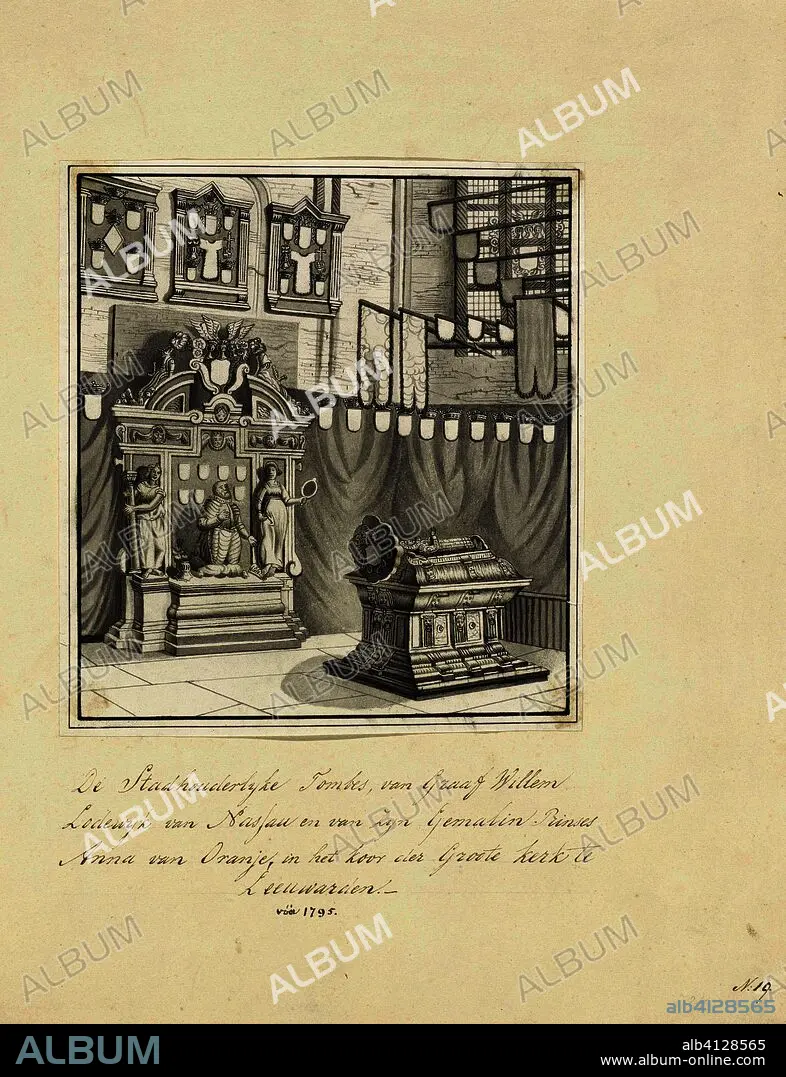 De Stadhouderlyke Tombes, van Graaf Willem
Lodewyk van Nassau en van Zyn Gemalin Prinses
Anna van Oranje, in het koor der Groote kerk te
Leeuwarden.-
vóór 1795.
N. 19.
alb4128565
ALBUM
alb4128565
www.album-online.com